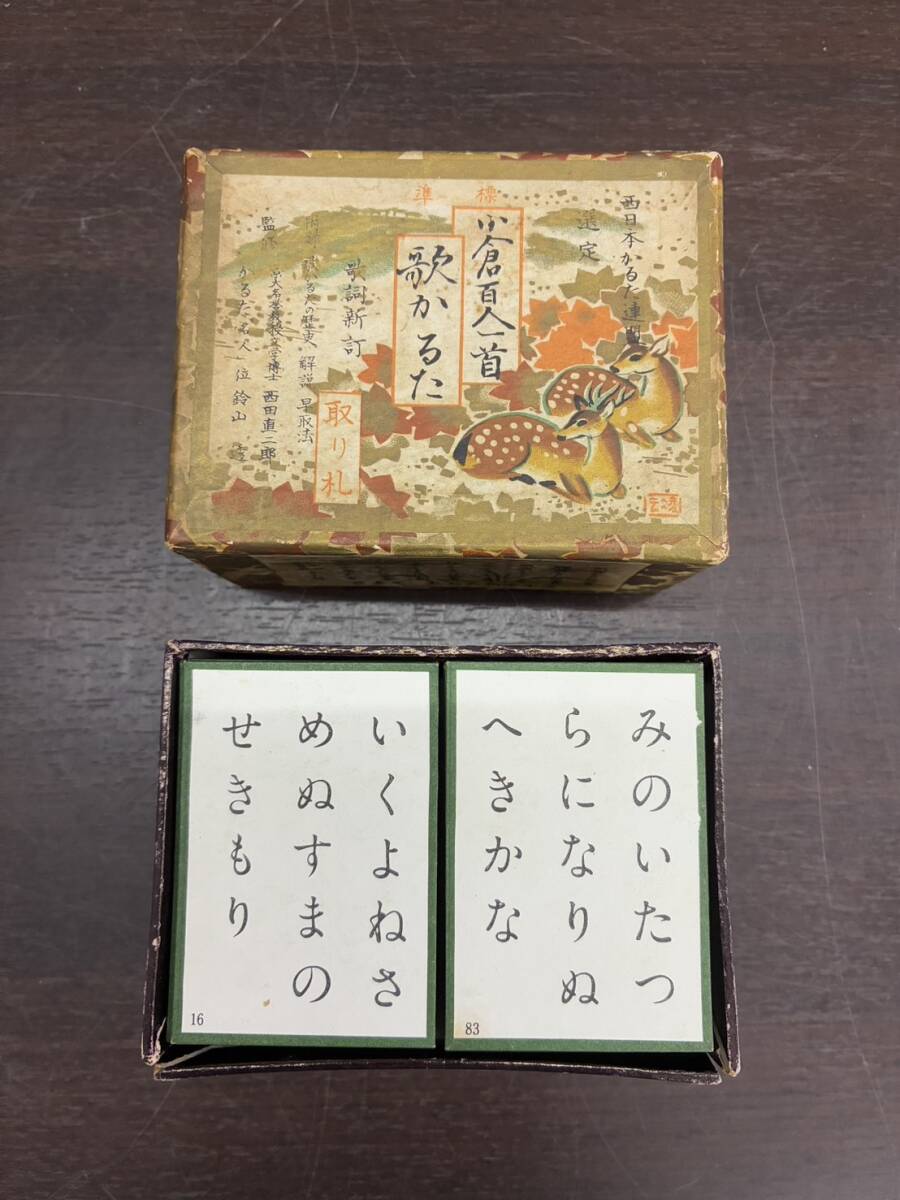 西日本かるた連盟
選定
標準
小倉百人一首
歌かるた
歌詞新訂
取り札
附録 歌かるたの歴史 解説 早取法
監修
京大名誉教授文学博士 西田直二郎
かるた名人位 鈴山
みのいたつ
らになりぬ
へきかな
83
いくよねさ
めぬすまの
せきもり
16